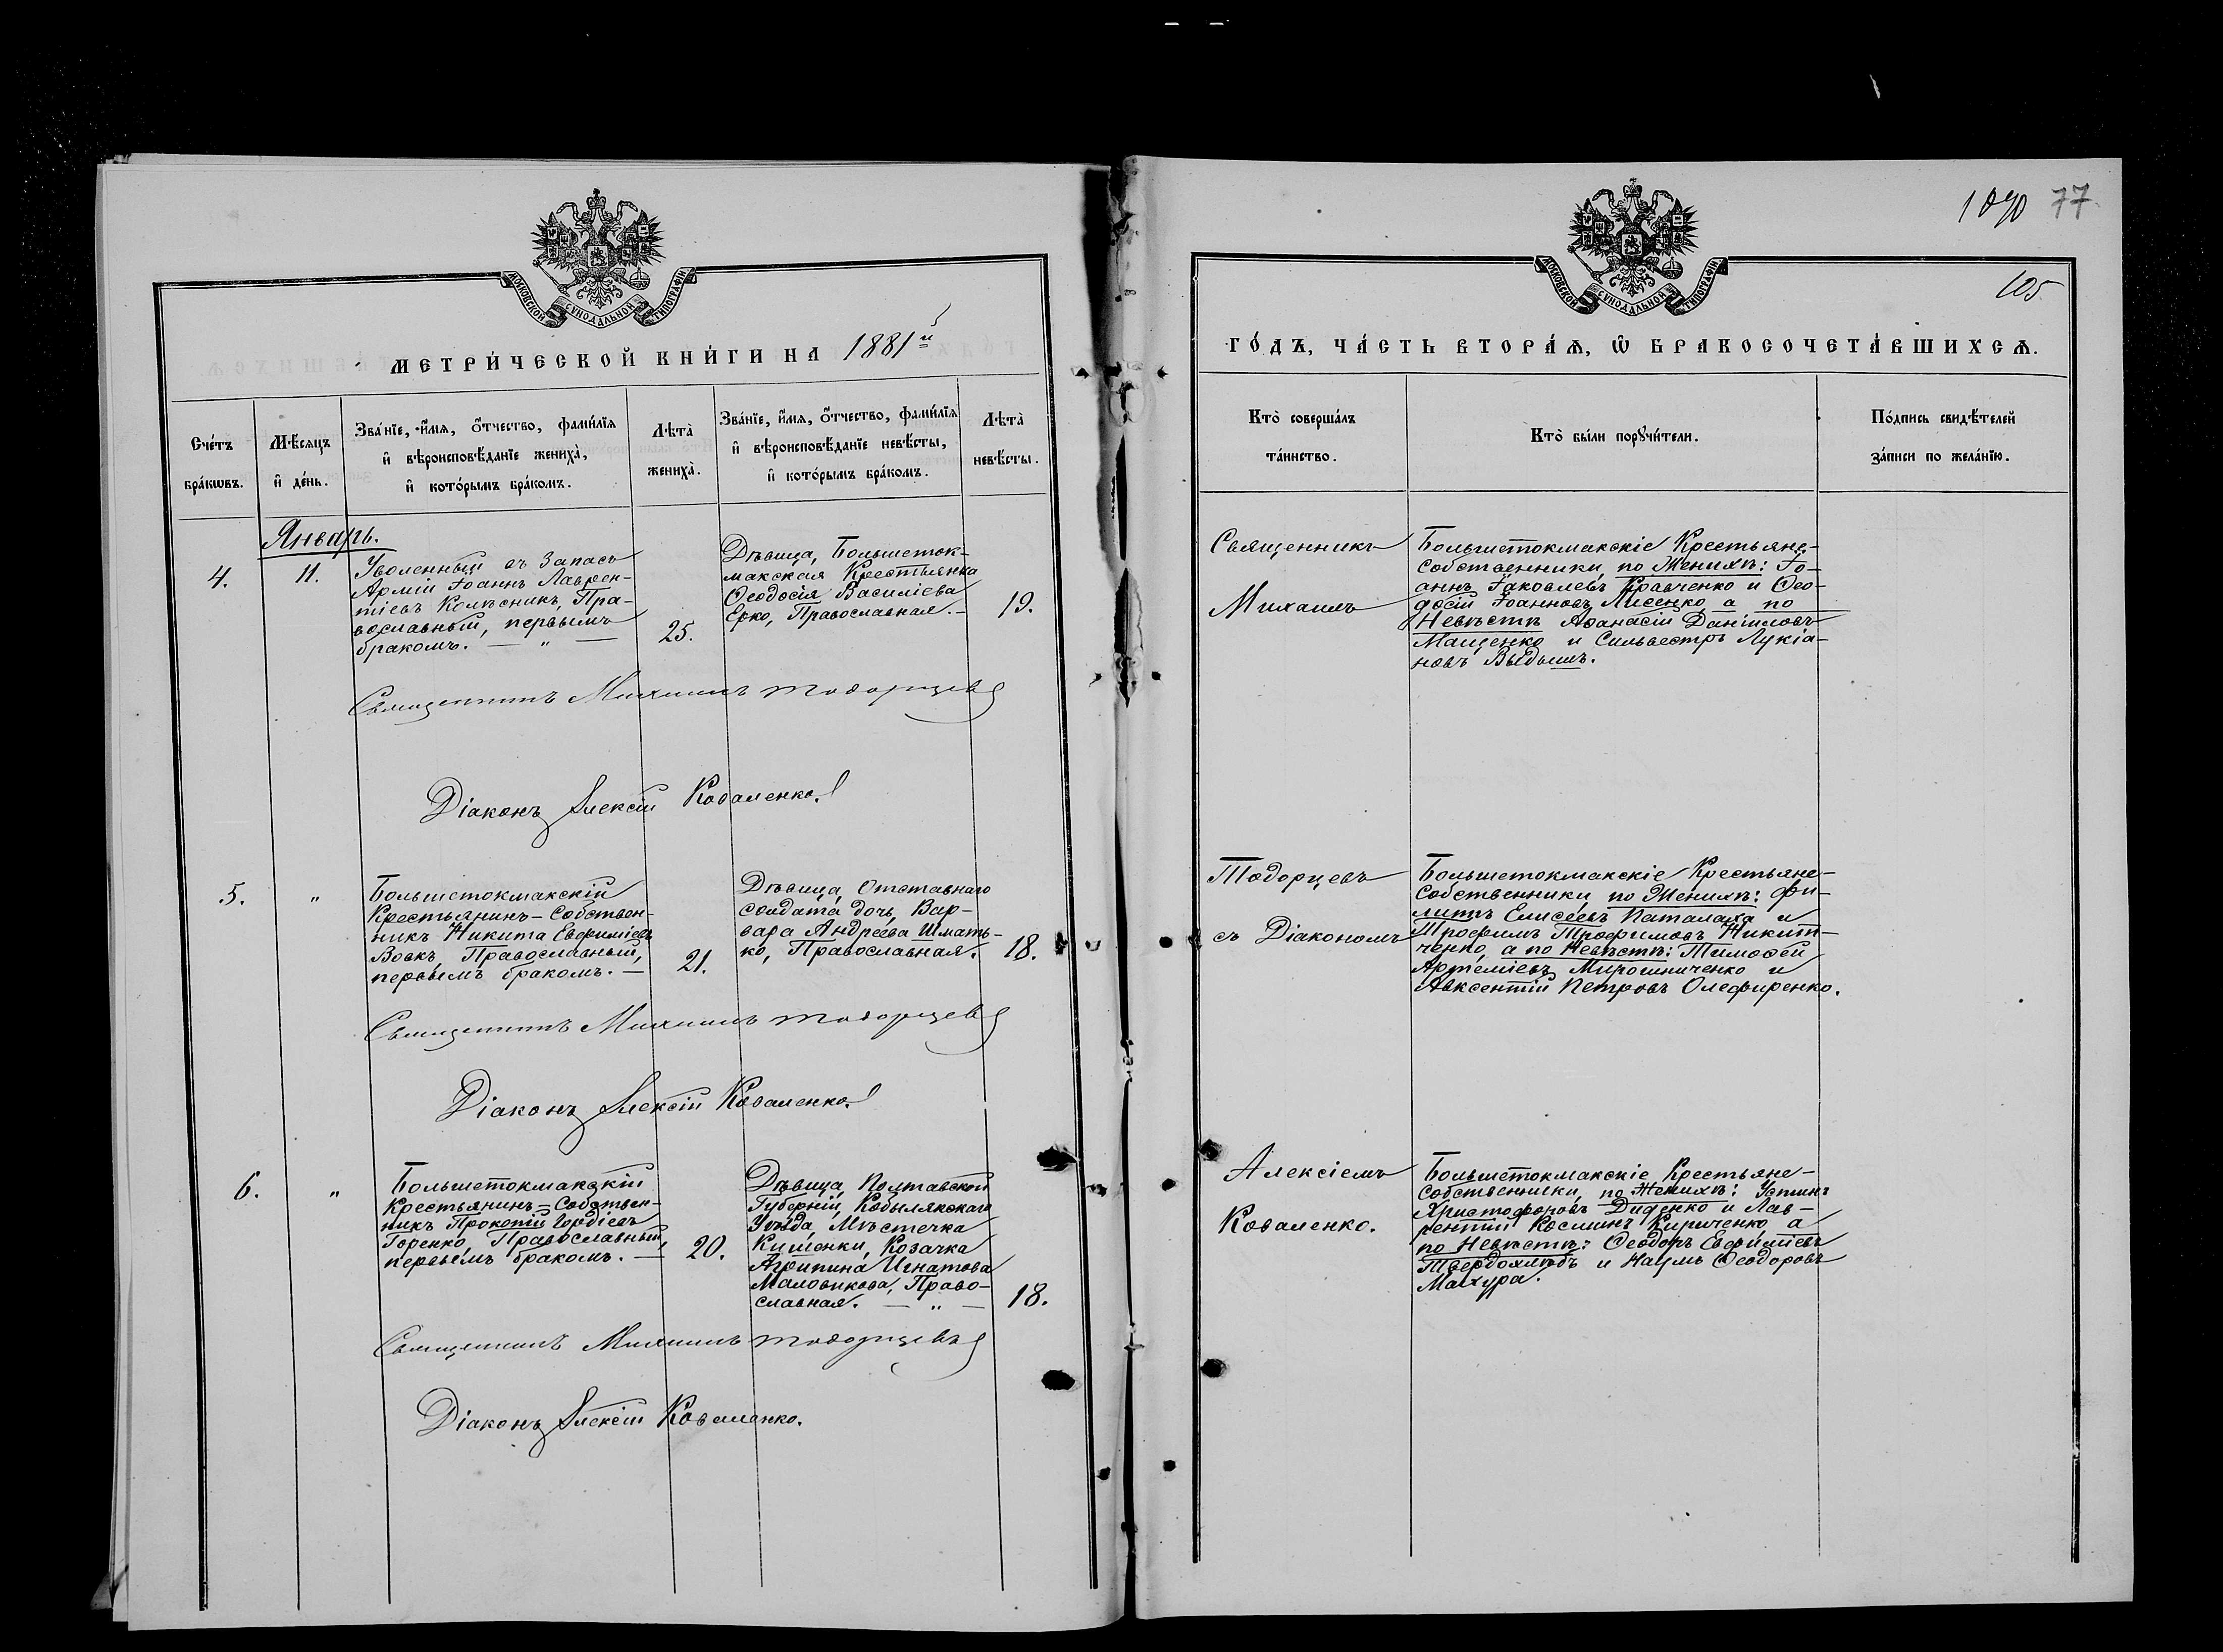 МОСКОВСКОЙ СУНОДАЛЬНОЙ ТИПОГРАФІИ
МЕТРИ́ЧЕСКОЙ КНИ́ГИ НА 1881й
Сче́тъ бра́кѡвъ.
Мѣ́сяцъ и҆ де́нь.
Зва́нїе, и҆́мѧ, о҆́тчество, фами́лїѧ и҆ вѣроисповѣ́данїе жениха̀, и҆ кото́рымъ бра́комъ.
Лѣта̀ жениха̀.
Зва́нїе, и҆́мѧ, о҆́тчество, фами́лїѧ и҆ вѣроисповѣ́данїе невѣ́сты, и҆ кото́рымъ бра́комъ.
Лѣта̀ невѣ́сты.
Январь.
4.
11.
Уволенный въ Запасъ
Арміи Іоаннъ Лаврен-
тіевъ Колѣсникъ, Пра-
вославный, первымъ
бракомъ. — „ —
25.
Дѣвица, Большеток-
макская Крестьянка
Ѳеодосія Василіева
Ерко, Православная. —
19.
Священникъ Михаилъ Тодорцевъ
Діаконъ Алексій Коваленко.
5.
„
Большетокмакскій
Крестьянинъ-Собствен-
никъ Никита Евфиміевъ
Вовкъ, Православный,
первымъ бракомъ. —
21.
Дѣвица, Отставнаго
солдата дочь, Вар-
вара Андреева Шмать-
ко, Православная.
18.
Священникъ Михаилъ Тодорцевъ
Діаконъ Алексій Коваленко.
6.
„
Большетокмакскій
Крестьянинъ-Собствен-
никъ Прокопій Гордіевъ
Горенко, Православный,
первымъ бракомъ. —
20.
Дѣвица, Полтавской
Губерніи, Кобылякскаго
Уѣзда, Мѣстечка
Кишенки, Козачка
Агрипина Игнатова
Маловикова, Право-
славная. — „ —
18.
Священникъ Михаилъ Тодорцевъ
Діаконъ Алексій Коваленко.
77
105
МОСКОВСКОЙ СУНОДАЛЬНОЙ ТИПОГРАФІИ
ГО́ДЪ, ЧА́СТЬ ВТОРА́Ѧ, Ѽ БРАКОСОЧЕТА́ВШИХСѦ.
Кто̀ соверша́лъ та́инство.
Кто̀ бы́ли порꙋчи́тели.
По́дпись свидѣ́телей за́писи по жела́нїю.
Священникъ
Михаилъ
Тодорцевъ
съ Діакономъ
Алексіемъ
Коваленко.
Большетокмакскіе Крестьяне-
Собственники, по Женихѣ: Іо-
аннъ Іаковлевъ Кравченко и Ѳео-
досій Іоанновъ Лисенко, а по
Невѣстѣ Аѳанасій Даніиловъ
Мащенко и Сильвестръ Лукіа-
новъ Выдышъ.
Большетокмакскіе Крестьяне-
Собственники, по Женихѣ: Фи-
липпъ Елисеевъ Паталаха и
Трофимъ Трофимовъ Никит-
ченко, а по Невѣстѣ: Тимофей
Артеміевъ Мирошниченко и
Авксентій Петровъ Олефиренко.
Большетокмакскіе Крестьяне-
Собственники, по Женихѣ: Устинъ
Христофоровъ Диденко и Лав-
рентій Косминъ Кириченко, а
по Невѣстѣ: Ѳеодоръ Евфиміевъ
Твердохлѣбъ и Наумъ Ѳеодоровъ
Махура.